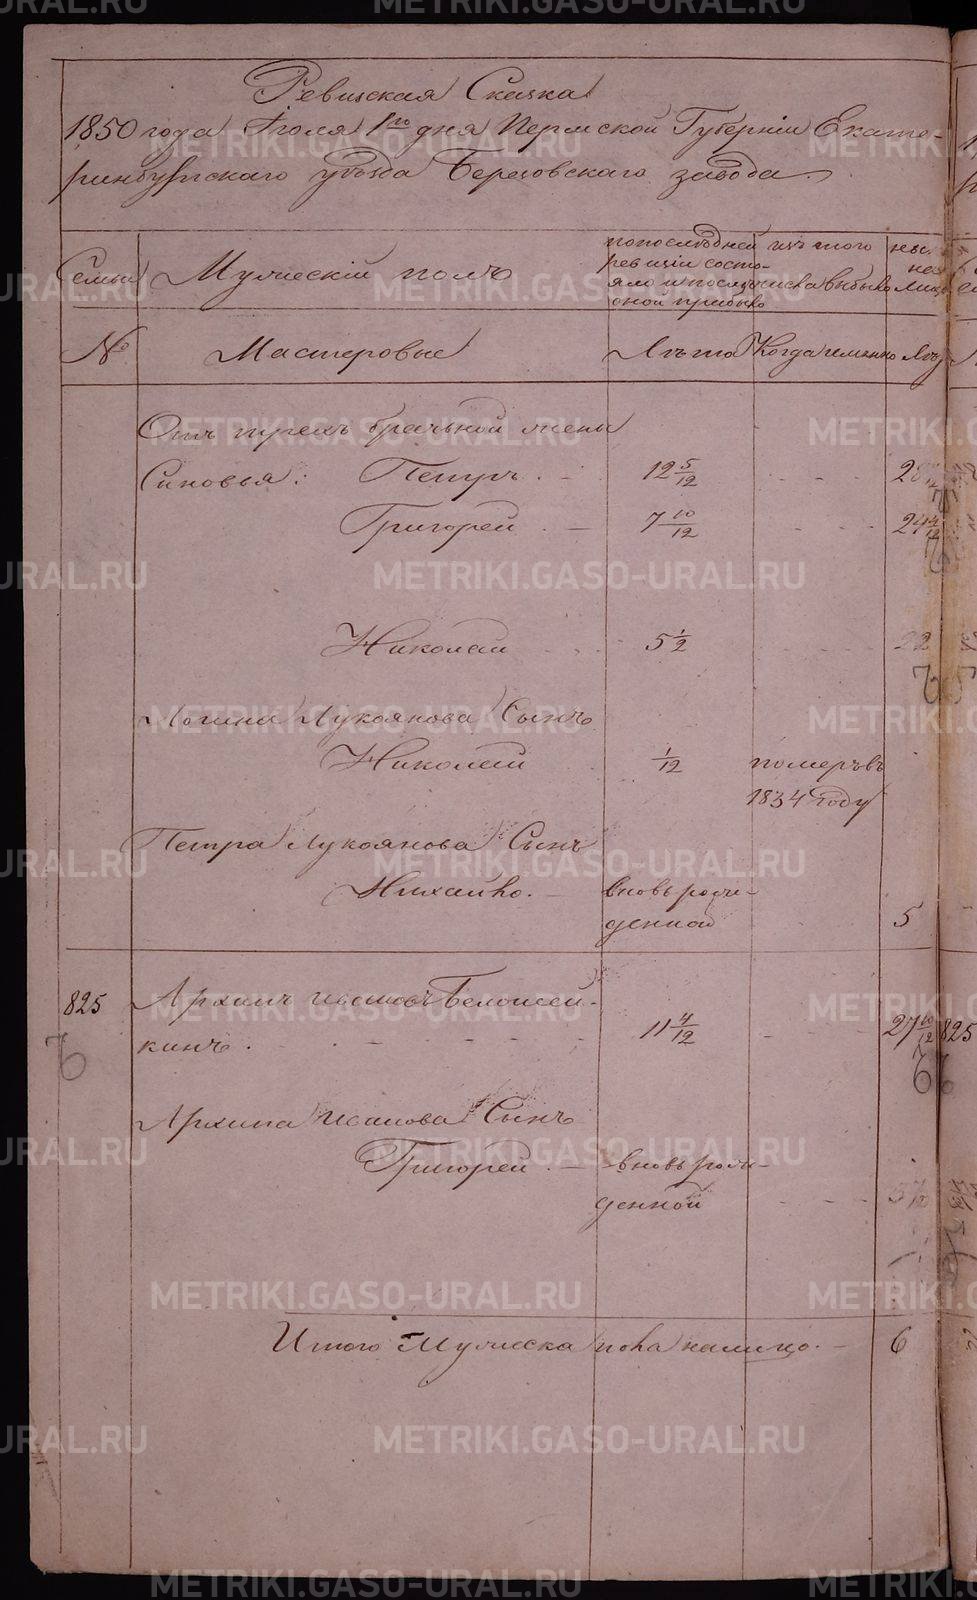 Ревизская Сказка
1850 года Іюля 1го дня Пермской Губерніи Екате-
ринбургскаго уѣзда Березовскаго завода.
Семьи
Мужескій полъ
по последней
ревизіи состо-
яло и послѣ
оной прибыло
изъ того
числа выбыло
ны-
не на
лицо
№
Мастеровые
Лѣта
Когда именно
Лѣт
Отъ трехъ брачьной жены
Синовья: Петръ. 12 5/12 28
Григорей 7 10/12 24 4/12
Николай 5 1/2 22
Логина Лукоянова Сынъ
Николай 1/12 померъ въ
1834 году
Петра Лукоянова Сынъ
Михайло. вновь рож-
денной 5
825 Архипъ Ивановъ Белошей-
кинъ. 11 4/12 27 10/12 825
Архипа Иванова Сынъ
Григорей. вновь рож-
денной
Итого Мужеска пола налицо. 6
METRIKI.GASO-URAL.RU